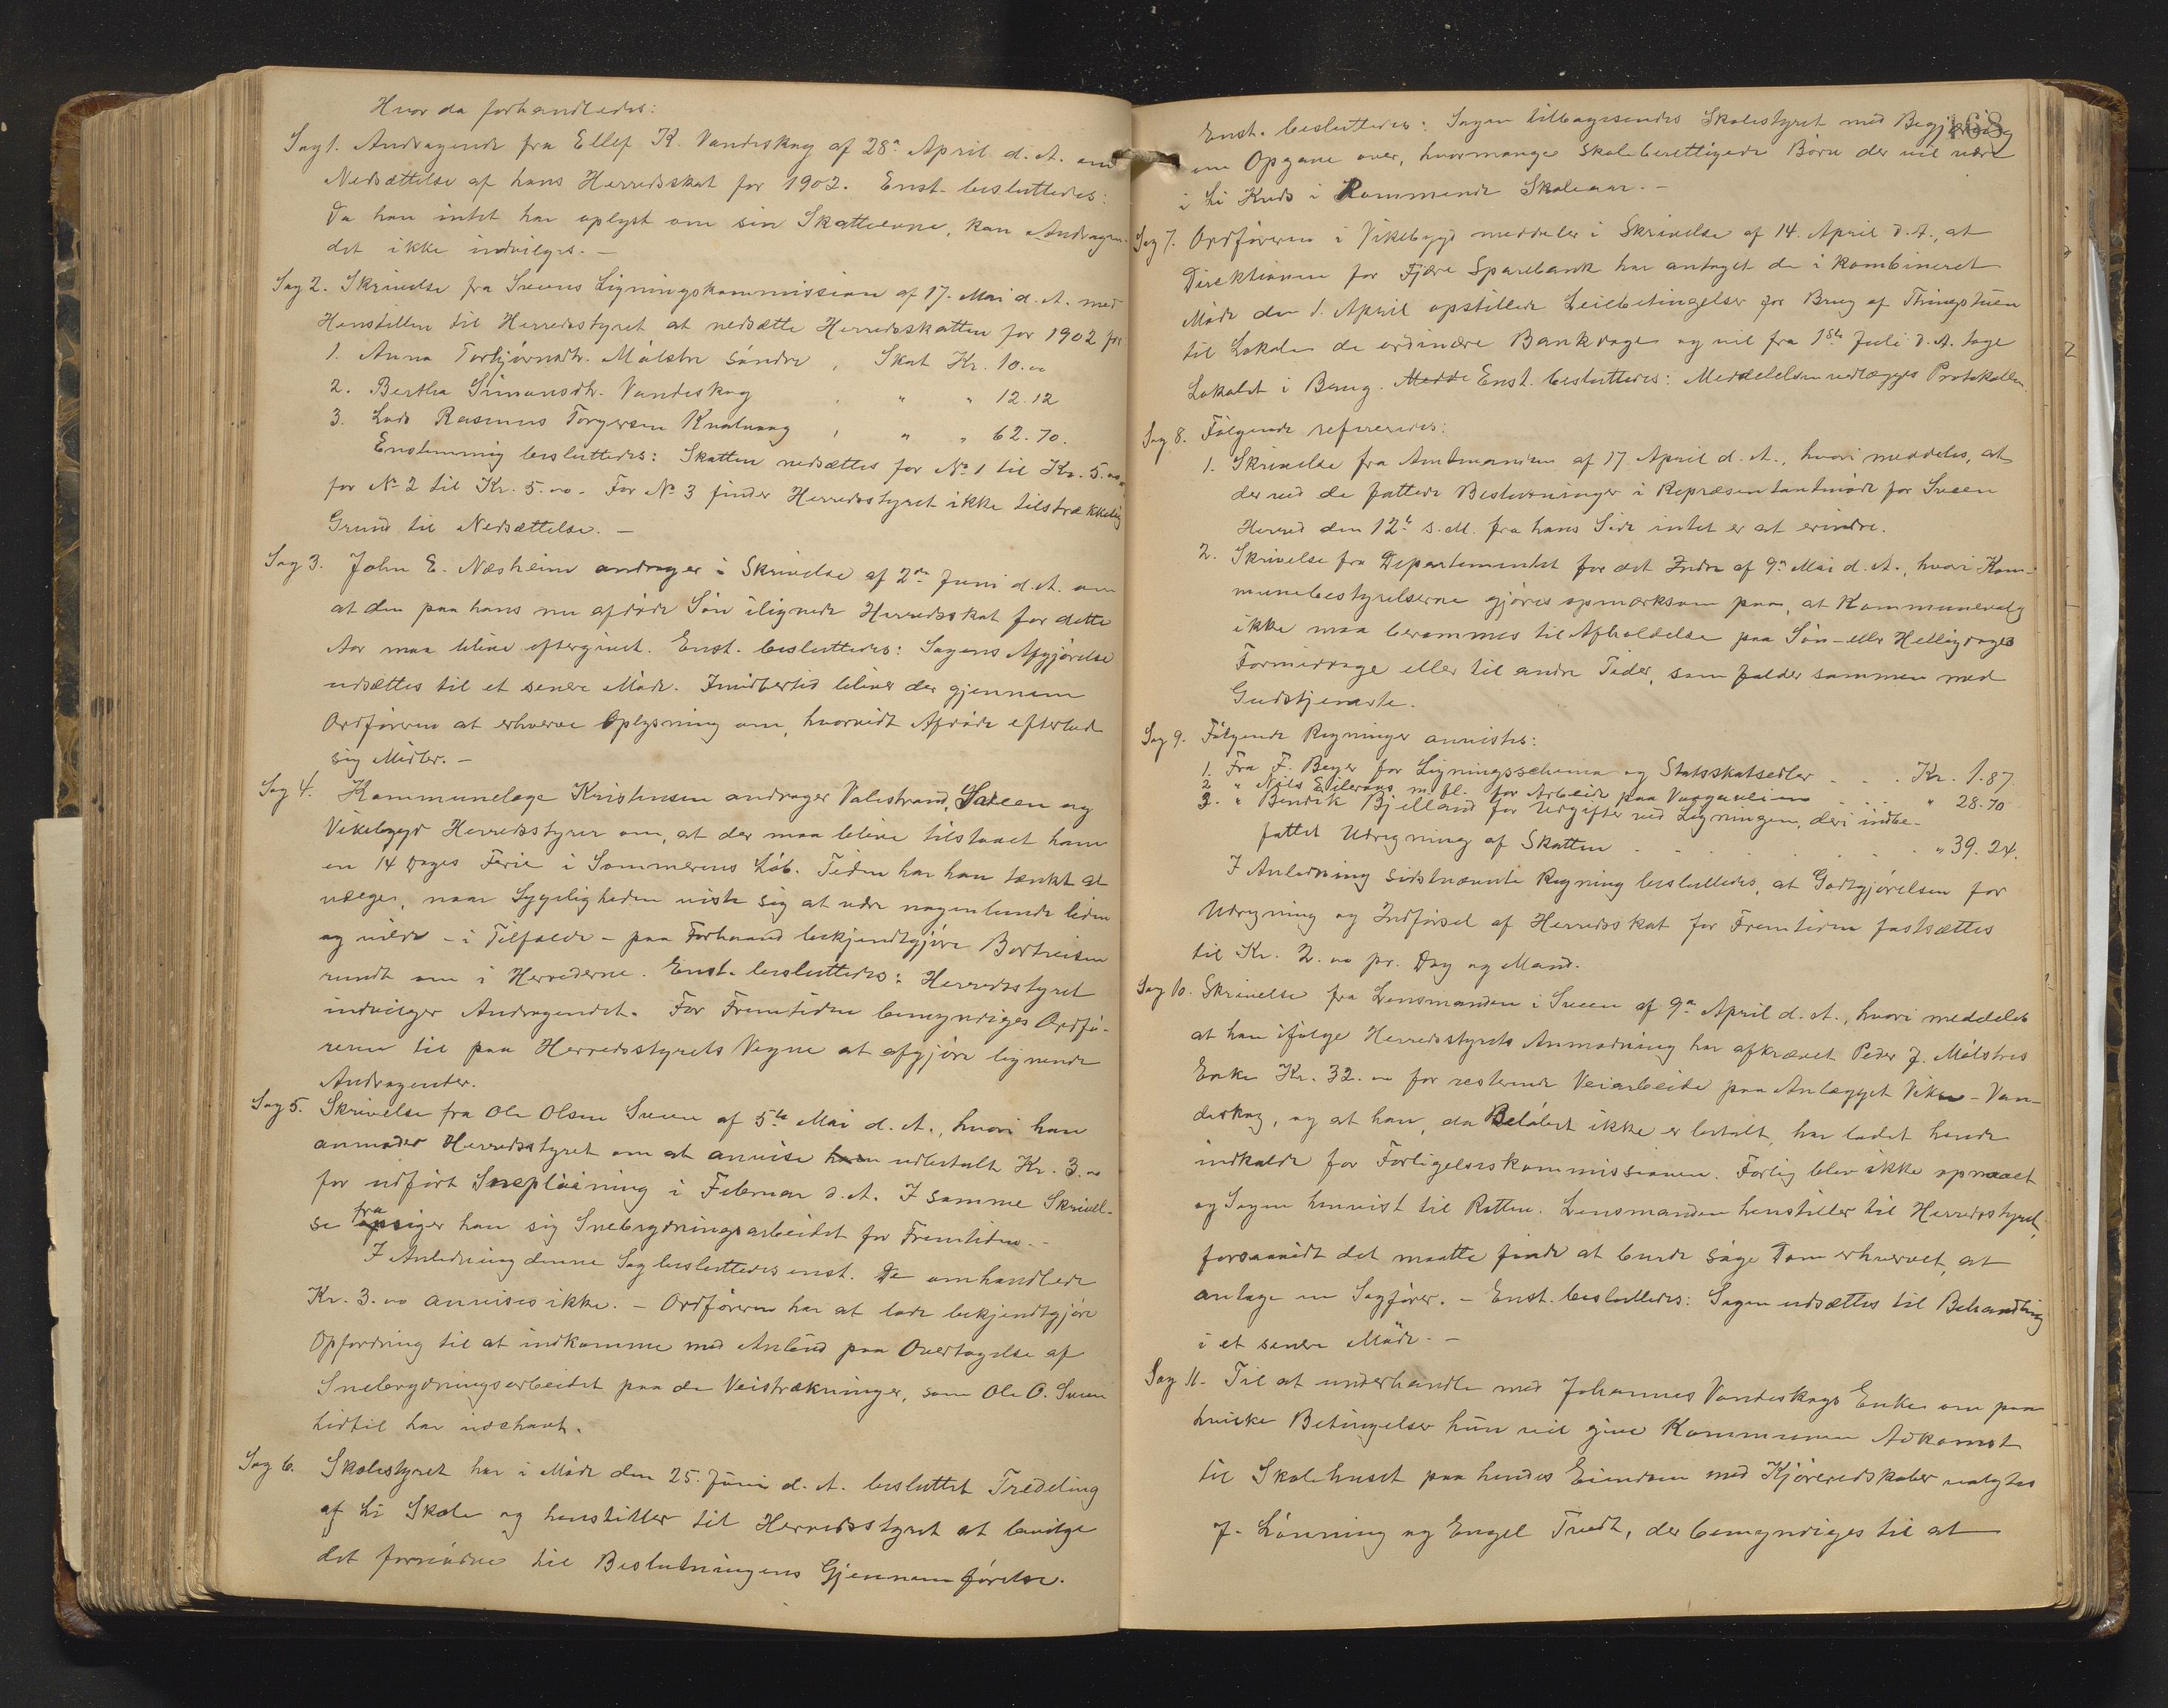 Hvor da forhandledes:
Sag 1. Andragende fra Ellef K. Vandeskog af 28de April d. A. om
Nedsættelse af hans Herredsskat for 1902. Enst. besluttedes:
Da han intet har oplyst om sin Skatteevne, kan Andragen-
det ikke indvilges. –
Sag 2. Skrivelse fra Sveens Ligningskommission af 17. Mai d. A. med
Henstillen til Herredsstyret at nedsætte Herredsskatten for 1902 for
1. Anna Torbjörnsdtr. Målstre söndre, Skat Kr. 10.00
2. Bertha Simonsdtr. Vandeskog , " " 12.12
3. Lods Rasmus Torgersen Kvalvaag , " " 62.70.
Enstemmig besluttedes: Skatten nedsættes for No 1 til Kr. 5.00,
for No 2 til Kr. 5.00. For No 3 finder Herredsstyret ikke tilstrækkelig
Grund til Nedsættelse. –
Sag 3. John E. Næsheim andrager i Skrivelse af 2den Juni d. A. om
at den paa hans nu afdöde Sön ilignede Herredsskat for dette
Aar maa blive eftergivet. Enst. besluttedes: Sagens Afgjörelse
udsættes til et senere Möde. Imidlertid bliver der gjennem
Ordföreren at erhverve Oplysning om, hvorvidt Afdöde efterlod
sig Midler. –
Sag 4. Kommunelæge Kristensen andrager Valestrand, Sveen og
Vikebygd Herredsstyrer om, at der maa blive tilstaaet ham
en 14 Dages Ferie i Sommerens Löb. Tiden har han tænkt at
vælge, naar Sygeligheden viste sig at være nogenlunde liden
og vilde – i Tilfælde – paa Forhaand bekjendtgjöre Bortreisen
rundt om i Herrederne. Enst. besluttedes: Herredsstyret
indvilger Andragendet. For Fremtiden bemyndiges Ordfö-
reren til paa Herredsstyrets Vegne at afgjöre lignende
Andragender.
Sag 5. Skrivelse fra Ole Olsen Sveen af 5te Mai d. A., hvori han
anmoder Herredsstyret om at anvise ham udbetalt Kr. 3.00
for udfört Sneplöining i Februar d. A. I samme Skrivel-
se frasiger han sig Snebrydningsarbeidet for Fremtiden. –
I Anledning denne Sag besluttedes enst. De omhandlede
Kr. 3.00 anvises ikke. – Ordföreren har at lade bekjendtgjöre
Opfordring til at indkomme med Anbud paa Overtagelse af
Snebrydningsarbeidet paa de Veistrækninger, som Ole O. Sveen
hidtil har indehavt.
Sag 6. Skolestyret har i Möde den 25. Juni d. A. besluttet Tredeling
af Li Skole og henstiller til Herredsstyret at bevilge
det fornödne til Beslutningens Gjennemförelse.
168
Enst. besluttedes: Sagen tilbagesendes Skolestyret med Begjæring
om Opgave over, hvormange skoleberettigede Börn der vil være
i Li Kreds i kommende Skoleaar. –
Sag 7. Ordföreren i Vikebygd meddeler i Skrivelse af 14. April d. A., at
Direktionen for Fjære Sparebank har antaget de i kombineret
Möde den 1. April opstillede Leiebetingelser for Brug af Thingstuen
til Lokale de ordinære Bankdage og vil fra 1ste Juli d. A. tage
Lokalet i Brug. Medde Enst. besluttedes: Meddelelsen vedlægges Protokollen.
Sag 8. Fölgende refereredes:
1. Skrivelse fra Amtmanden af 17 April d. A., hvori meddeles, at
der ved de fattede Beslutninger i Repræsentantmöde for Sveen
Herred den 12te s. M. fra hans Side intet er at erindre.
2. Skrivelse fra Departementet for det Indre af 9de Mai d. A., hvori Kom-
munebestyrelserne gjöres opmærksom paa, at Kommunevalg
ikke maa berammes til Afholdelse paa Sön- eller Helligdages
Formiddage eller til andre Tider, som falder sammen med
Gudstjeneste.
Sag 9. Fölgende Regninger anvistes:
1. Fra F. Beyer for Ligningsschema og Statsskatsedler . . . Kr. 1.87
2 " Nils Eilerаas m. fl. for Arbeide paa . . . " 28.70
3. " Bendik Bjelland for Udgifter ved Ligningen, deri indbe-
fattet Udregning af Skatten . . . . . " 39.24.
I Anledning sidstnævnte Regning besluttedes, at Godtgjörelsen for
Udregning og Indförsel af Herredsskat for Fremtiden fastsættes
til Kr. 2.00 pr. Dag og Mand.
Sag 10. Skrivelse fra Lensmanden i Sveen af 9de April d. A., hvori meddeles
at han ifölge Herredsstyrets Anmodning har afkrævet Peder J. Målstres
Enke Kr. 32.00 for resterende Veiarbeide paa Anlægget Viken – Van-
deskog, og at han, da Belöbet ikke er betalt, har ladet hende
indkalde for Forligelseskommissionen. Forlig blev ikke opnaaet
og Sagen henvist til Retten. Lensmanden henstiller til Herredsstyret,
forsaavidt det maatte finde at burde söge Dom erhvervet, at
antage en Sagförer. – Enst. besluttedes: Sagen udsættes til Behandling
i et senere Möde. –
Sag 11. Til at underhandle med Johannes Vandeskogs Enke om paa
hvilke Betingelser hun vil give Kommunen Adkomst
til Skolehuset paa hendes Eiendom med Kjöreredskaber valgtes
J. Lönning og Engel Tvedt, der bemyndiges til at